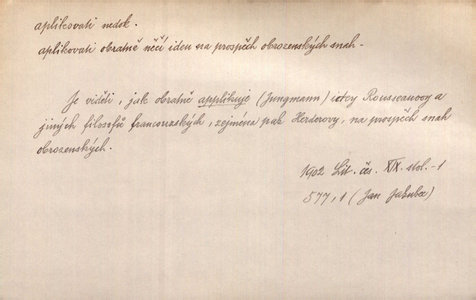 aplikovati nedok.
aplikovati obratně něčí ideu na prospěch obrozenských snah -
Je viděti, jak obratně applikuje (Jungmann) idey Rousseauovy a
jiných filosofů francouzských, zejména pak Herderovy, na prospěch snah
obrozenských.
1902 Lit. čes. XIX. stol. - 1
577, 1 (Jan Jakubec)